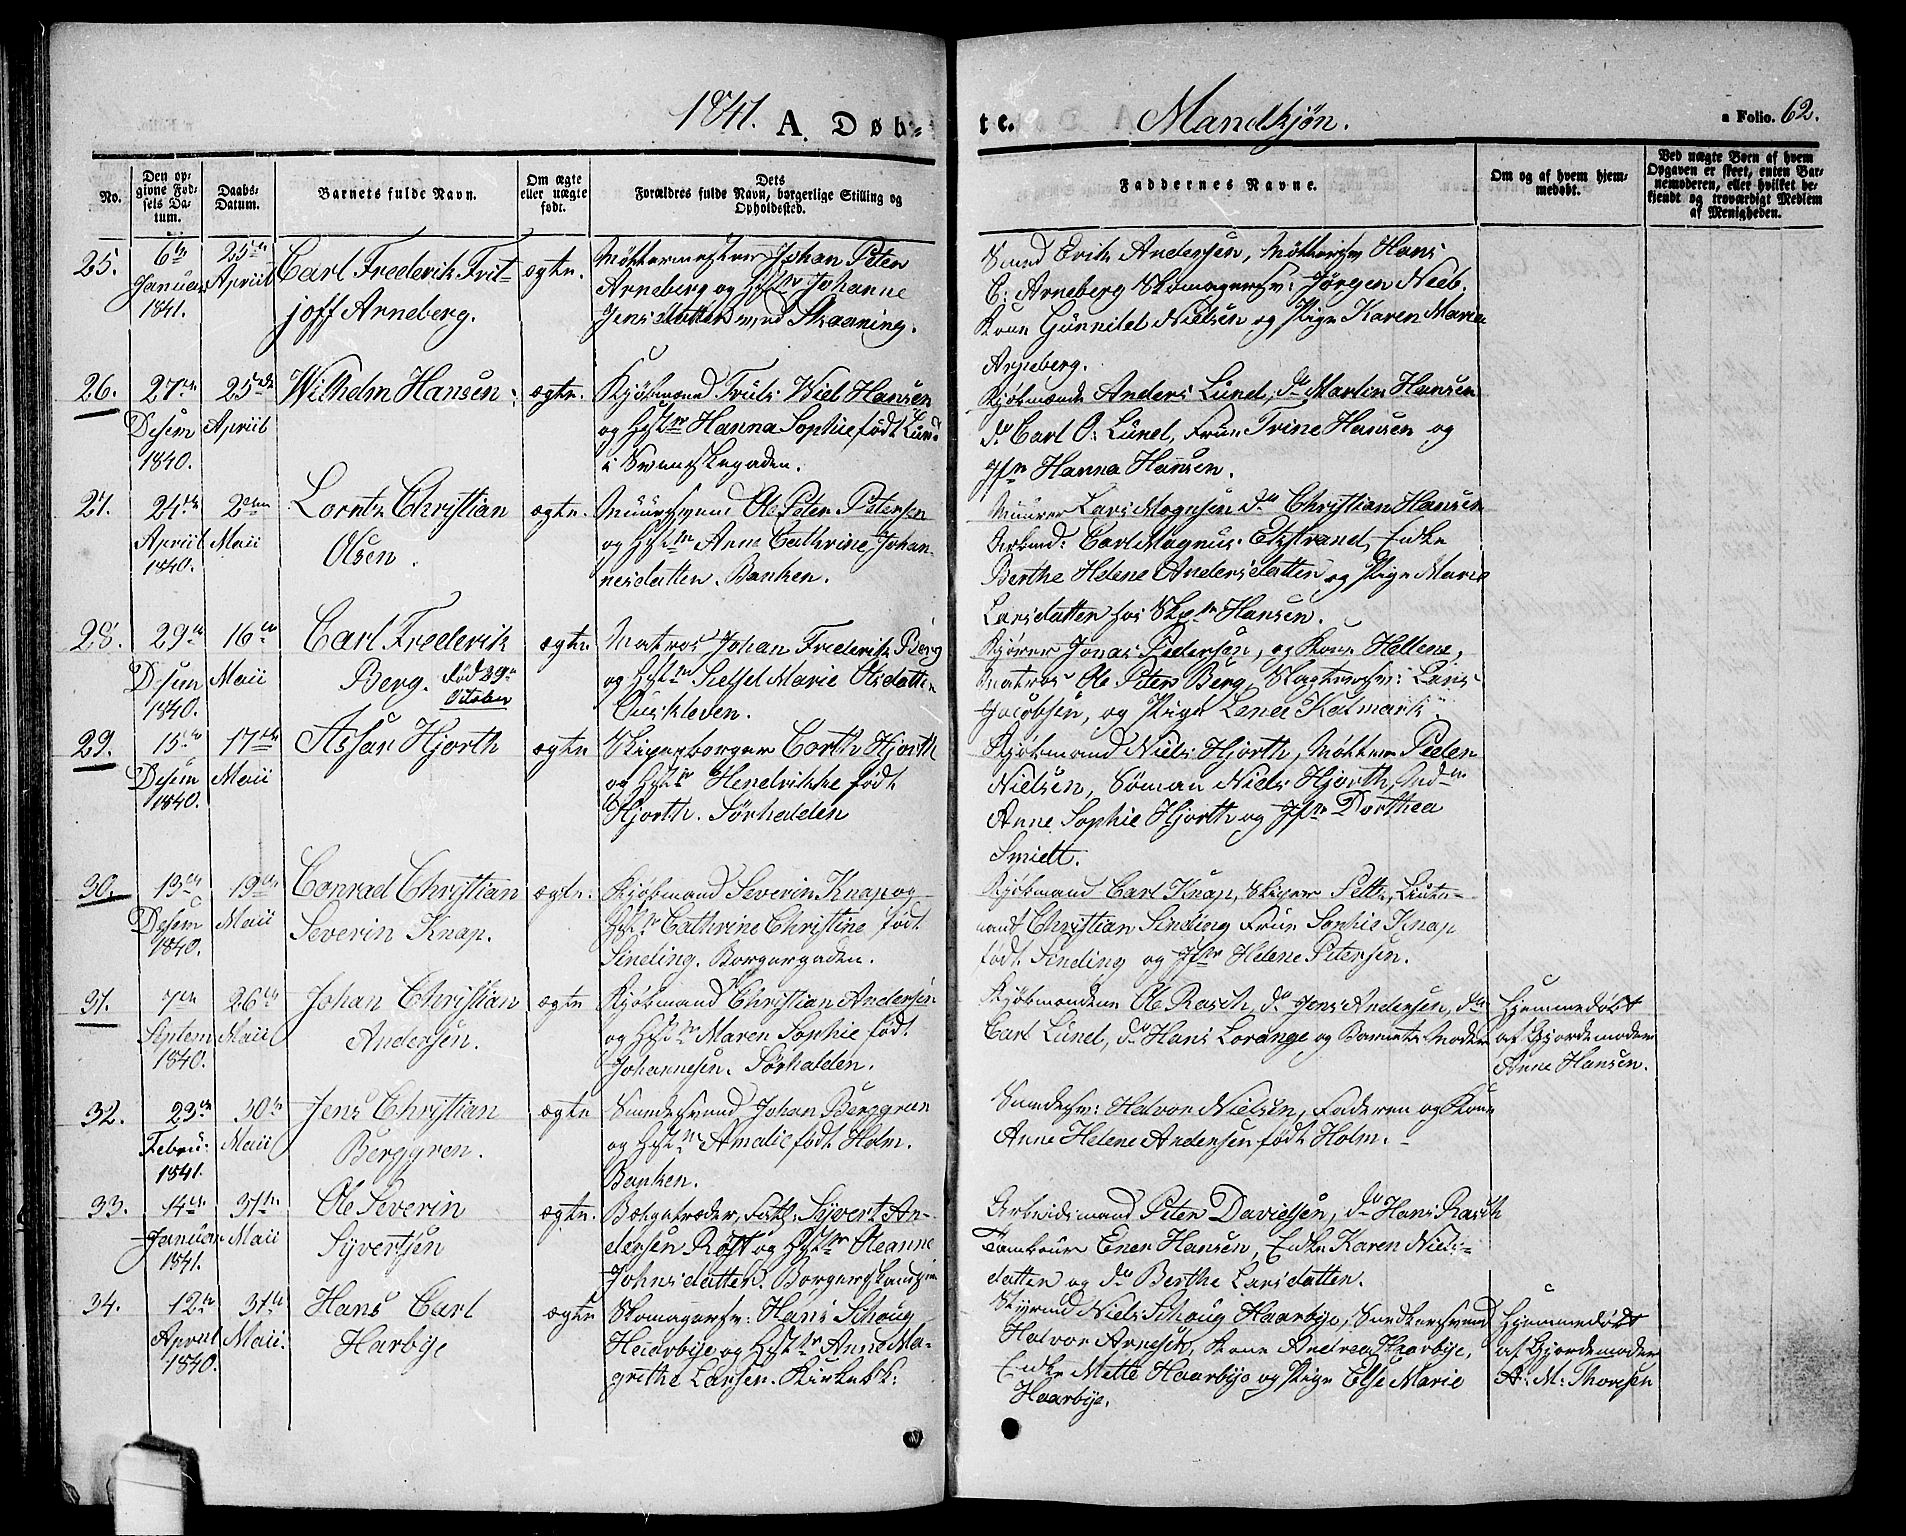 1841. A. Døb-
te. Mandkjøn. a Folio. 62.
No.
Den op-
givne Fød-
sels Da-
tum.
Daabs-
Datum.
Barnets fulde Navn.
Om ægte
eller uægte
født.
Dets
Forældres fulde Navn, borgerlige Stilling og
Opholdssted.
Faddernes Navne.
Om og af hvem hjem-
medøbt.
Ved uægte Børn af hvem
Opgaven er skeet, enten Bar-
nemoderen, eller hvilket be-
kjendt og troværdigt Medlem
af Menigheden.
25.
6te
Januar
1841.
25de
Apriil
Carl Frederik Frit-
joff Arneberg.
ægte.
Møllermester Johan Peter
Arneberg og Hst. Johanne
Jensdatter
Smed Erik Andersen, Hans
C: Arneberg Skomagersv: Jørgen
Kone Gunnild Nielsen og Pige Karen Maria
Arneberg.
26.
27de
Desem
1840.
25de
Apriil
Wilhelm Hansen
ægte.
Kjøbmand Truls Wiel Hansen
og Hst. Hanna Sophie født Lund
i Svenskegaden.
Kjøbmænd Anders Lund, do Martin Hansen
do Carl O: Lund, Frue Trine Hansen og
Jfr Hanna Hansen.
27.
24de
Apriil
1840.
2den
Maii
Lorntz Christian
Olsen.
ægte.
Muursvend Ole Peter Petersen
og Hst. Anne Cathrine Johan-
nesdatter. Banken.
Muurer Lars Mognsen do Christian Hansen
Carl Magnus Ekstrand, Enke
Berthe Helene Andersdatter og Pige Maria
Larsdatter hos Hansen.
28.
29de
Desem
1840.
16de
Maii
Carl Frederik
Berg. født 29de
October
ægte
Matros Johan Frederik Berg
og Hst. Sissel Marie Olsdatter
Kjører Jonas Pedersen, og Kone Hellene,
Matros Ole Peter Berg, Slagtersv: Lars
Jacobsen, og Pige Lena
29.
15de
Desem
1840.
17de
Maii
Assar Hjorth
ægte
Skipperborger Hjorth
og Hst. Hendrikke født
Hjorth. Sørhalden
Kjøbmand Niels Hjorth, Møller Peder
Nielsen, Sømand Niels Hjorth,
Anne Sophie Hjorth og Jfr Dorthea
Smidt.
30.
13de
Desem
1840.
19de
Maii
Conrad Christian
Severin Knap.
ægte.
Kjøbmand Severin Knap og
Hst. Cathrine Christine født
Sinding. Borgergaden.
Kjøbmand Carl Knap, Skiper Lieute-
nant Christian Sinding Frue Sophie Knap
født Sinding og Jfr Helene Petersen.
31.
7de
Septem
1840.
26de
Maii
Johan Christian
Andersen.
ægte
Kjøbmand Christian Andersen
og Hst. Maren Sophie født
Johannesen. Sørhalden.
Kjøbmændene Ole Rasch, do Jens Andersen, do
Carl Lund, do Hans Lorange og Barnets Moder
Hjemmedøbt
af Gjordemoder
Anne Hansen.
32.
23de
Febru:
1841.
30de
Maii
Jens Christian
Berggren.
ægte
Smedesvend Johan Berggren
og Hst. Amalie født Holm.
Banken.
Smedesv: Halvor Nielsen, Faderen og Kone
Anne Helene Andersen født Holm.
33.
4de
Januar
1841.
31te
Maii
Ole Severin
Syvertsen
ægte.
Syvert An-
dersen Røst og Hst. Oleanne
Johnsdatter.
Arbeidsmand Peter Davidsen, do Hans Rasch
Tambour Ener Hansen, Enke Karen Niels-
datter og do Berthe Larsdatter.
34.
12te
Apriil
1840.
31te
Maii.
Hans Carl
Harbye
ægte
Skomagersv: Hans Schoug
Heiarbye og Hst. Anne Ma-
grethe Larsen. Kirkebk:
Styrmd Niels Schoug Haarbye, Snedkersvend
Halvor Arnesen, Kone Andrea Haarbye,
Enke Mette Haarbye og Pige Else Marie
Haarbye.
Hjemmedøbt
af Gjordemoder
A: M: Thoresen